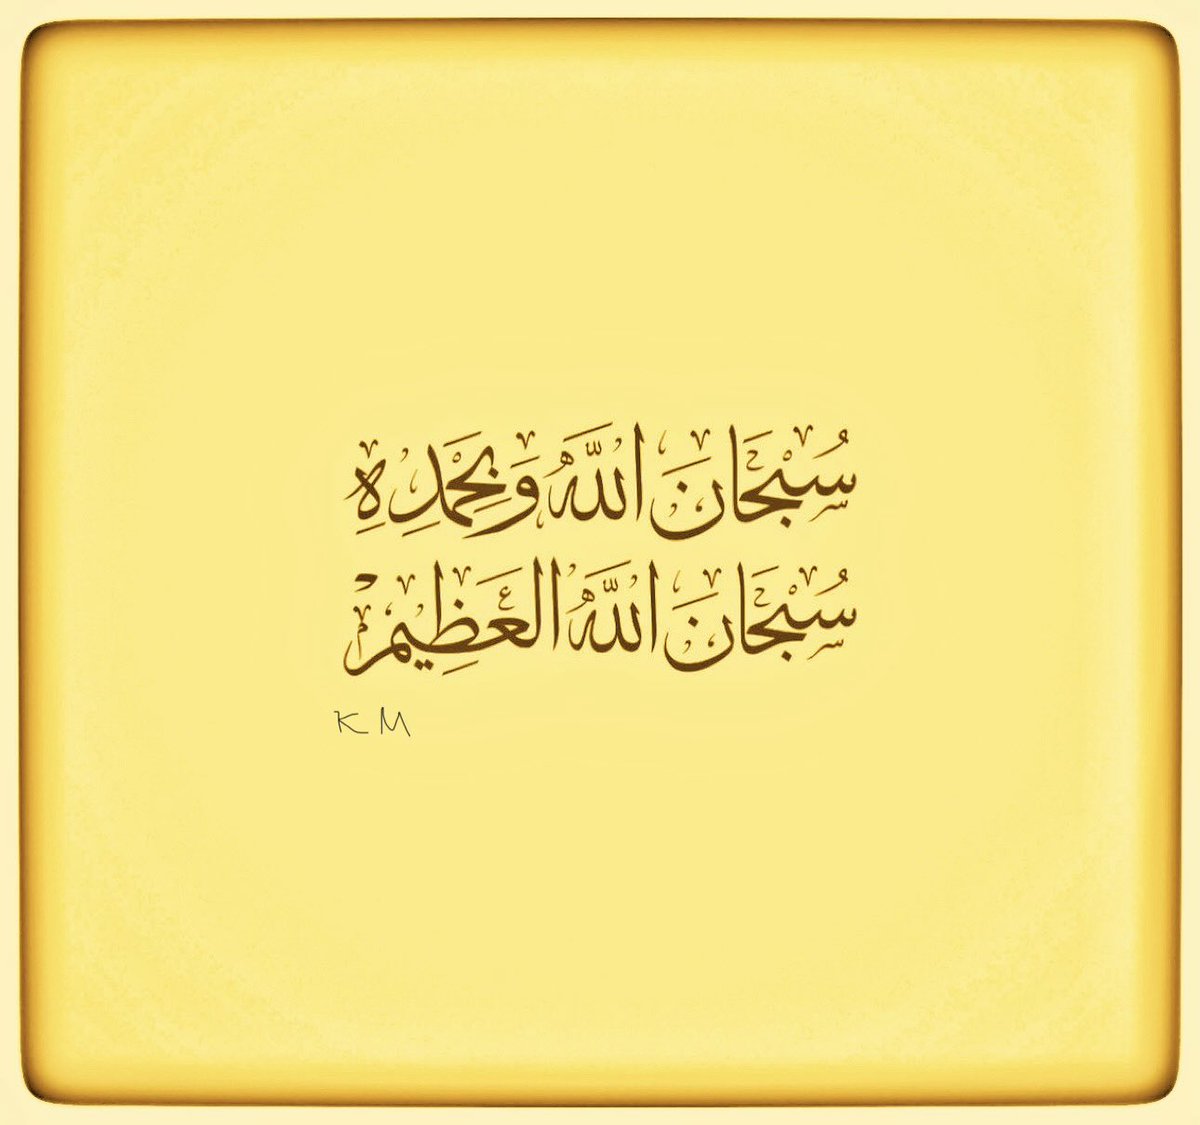 سُبْحَانَ اللَّهُ وَبِحَمْدِهِ
سُبْحَانَ اللَّهُ الْعَظِيمْ
K M